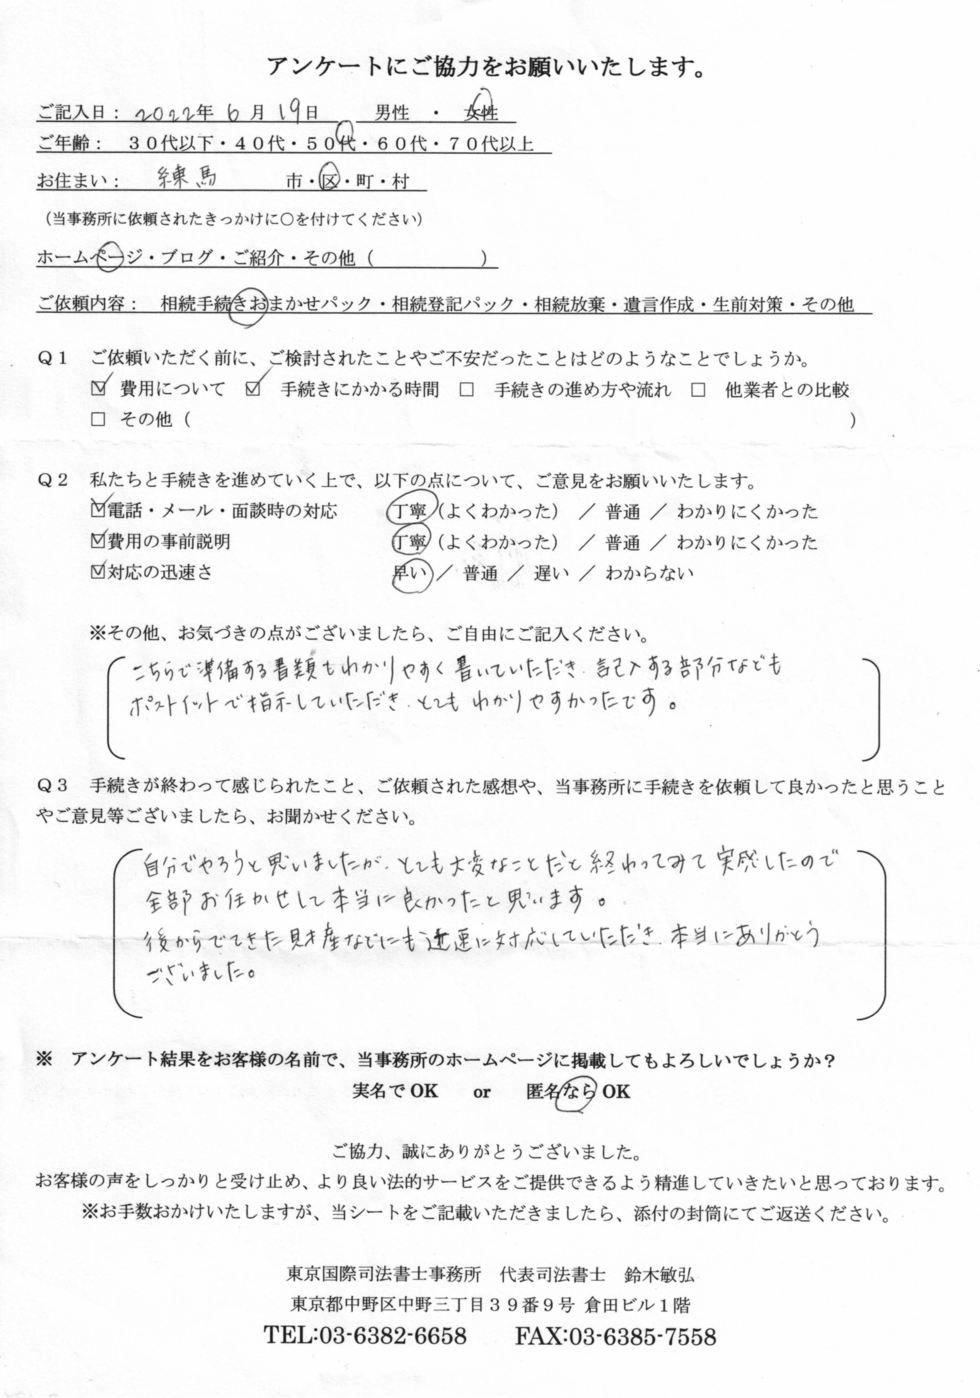 アンケートにご協力をお願いいたします。
ご記入日： 2022年 6月 19日 男性 ・ 女性
ご年齢： 30代以下・40代・50代・60代・70代以上
お住まい： 練馬 市・区・町・村
（当事務所に依頼されたきっかけに○を付けてください）
ホームページ・ブログ・ご紹介・その他（ ）
ご依頼内容： 相続手続きおまかせパック・相続登記パック・相続放棄・遺言作成・生前対策・その他
Q1 ご依頼いただく前に、ご検討されたことやご不安だったことはどのようなことでしょうか。
☑ 費用について ☑ 手続きにかかる時間 □ 手続きの進め方や流れ □ 他業者との比較
□ その他（ ）
Q2 私たちと手続きを進めていく上で、以下の点について、ご意見をお願いいたします。
☑電話・メール・面談時の対応 丁寧（よくわかった） ／ 普通 ／ わかりにくかった
☑費用の事前説明 丁寧（よくわかった） ／ 普通 ／ わかりにくかった
☑対応の迅速さ 早い ／ 普通 ／ 遅い ／ わからない
※その他、お気づきの点がございましたら、ご自由にご記入ください。
こちらで準備する書類もわかりやすく書いていただき、記入する部分なども
ポストイットで指示していただき、とてもわかりやすかったです。
Q3 手続きが終わって感じられたこと、ご依頼された感想や、当事務所に手続きを依頼して良かったと思うこと
やご意見等ございましたら、お聞かせください。
自分でやろうと思いましたが、とても大変なことだと終わってみて実感したので
全部お任せして本当に良かったと思います。
後からでてきた財産などにも迅速に対応していただき、本当にありがとう
ございました。
※ アンケート結果をお客様の名前で、当事務所のホームページに掲載してもよろしいでしょうか？
実名でOK or 匿名ならOK
ご協力、誠にありがとうございました。
お客様の声をしっかりと受け止め、より良い法的サービスをご提供できるよう精進していきたいと思っております。
※お手数おかけいたしますが、当シートをご記載いただきましたら、添付の封筒にてご返送ください。
東京国際司法書士事務所 代表司法書士 鈴木敏弘
東京都中野区中野三丁目39番9号 倉田ビル1階
TEL:03-6382-6658 FAX:03-6385-7558